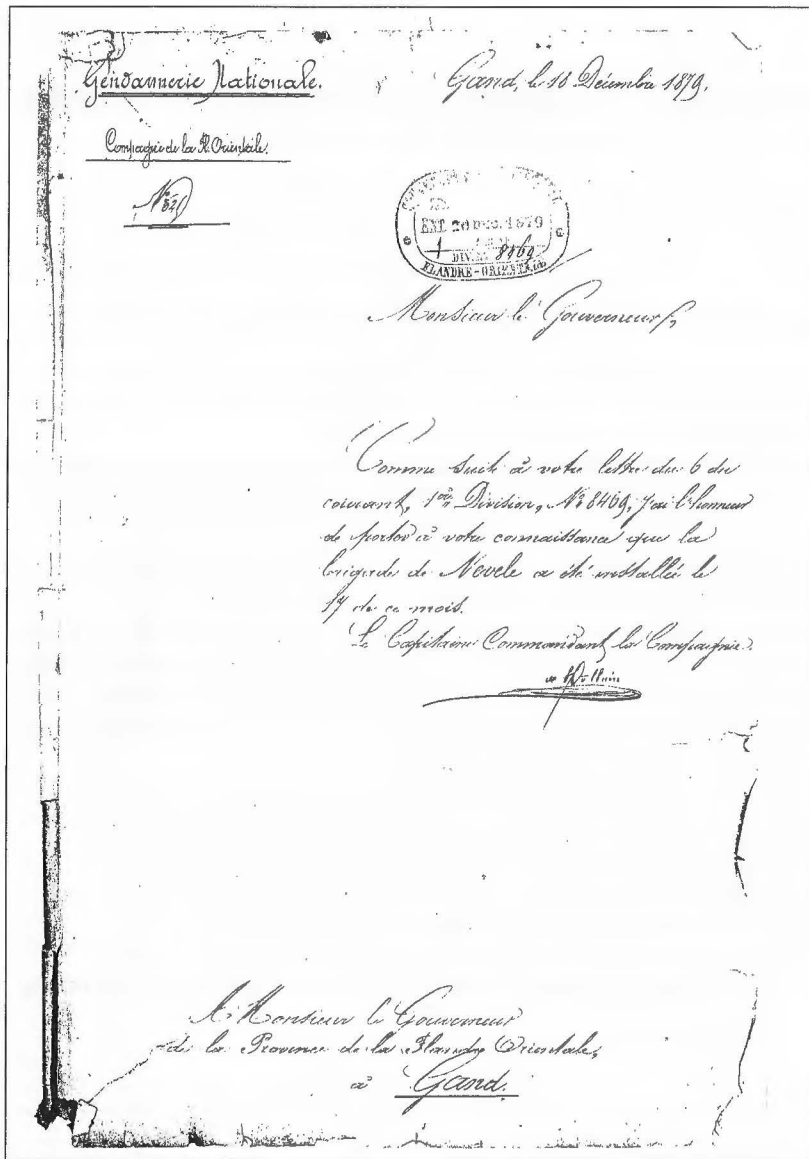 Gendarmerie Nationale.
Gand, le 18 Décembre 1879.
Compagnie de la Fl. Orientale.
ENT. 20 DEC. 1879
1
DIV. N. 8469
FLANDRE-ORIENTALE
Monsieur le Gouverneur,
Comme suite à votre lettre du 6 du
courant, 1ère Division, N° 8469, j'ai l'honneur
de porter à votre connaissance que la
brigade de Nevele a été installée le
17 de ce mois.
Le Capitaine Commandant la Compagnie.
A Monsieur le Gouverneur
de la Province de la Flandre Orientale,
à Gand.